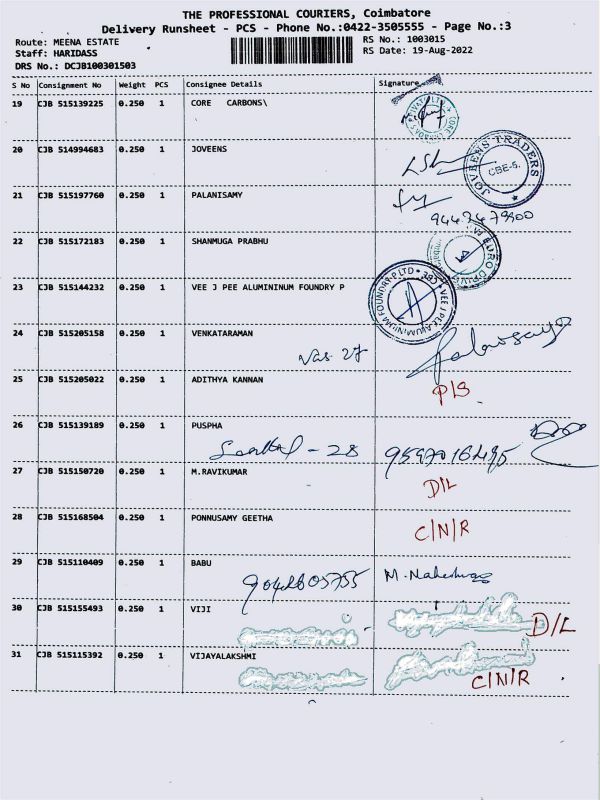 THE PROFESSIONAL COURIERS, Coimbatore
Delivery Runsheet - PCS - Phone No.:0422-3505555 - Page No.:3
Route: MEENA ESTATE RS No.: 1003015
Staff: HARIDASS RS Date: 19-Aug-2022
DRS No.: DCJB100301503
S No Consignment No Weight PCS Consignee Details Signature
19 CJB 515139225 0.250 1 CORE CARBONS\
20 CJB 514994683 0.250 1 JOVEENS
JOVEENS TRADERS
CBE-5.
21 CJB 515197760 0.250 1 PALANISAMY
9443479900
22 CJB 515172183 0.250 1 SHANMUGA PRABHU
23 CJB 515144232 0.250 1 VEE J PEE ALUMININUM FOUNDRY P
VEE J PEE ALUMINIUM FOUNDRY P LTD
24 CJB 515205158 0.250 1 VENKATARAMAN
25 CJB 515205022 0.250 1 ADITHYA KANNAN P/S
26 CJB 515139189 0.250 1 PUSPHA
27 CJB 515150720 0.250 1 M.RAVIKUMAR
D/L
28 CJB 515168504 0.250 1 PONNUSAMY GEETHA
C/N/R
29 CJB 515110409 0.250 1 BABU
30 CJB 515155493 0.250 1 VIJI
D/L
31 CJB 515115392 0.250 1 VIJAYALAKSHMI
C/N/R